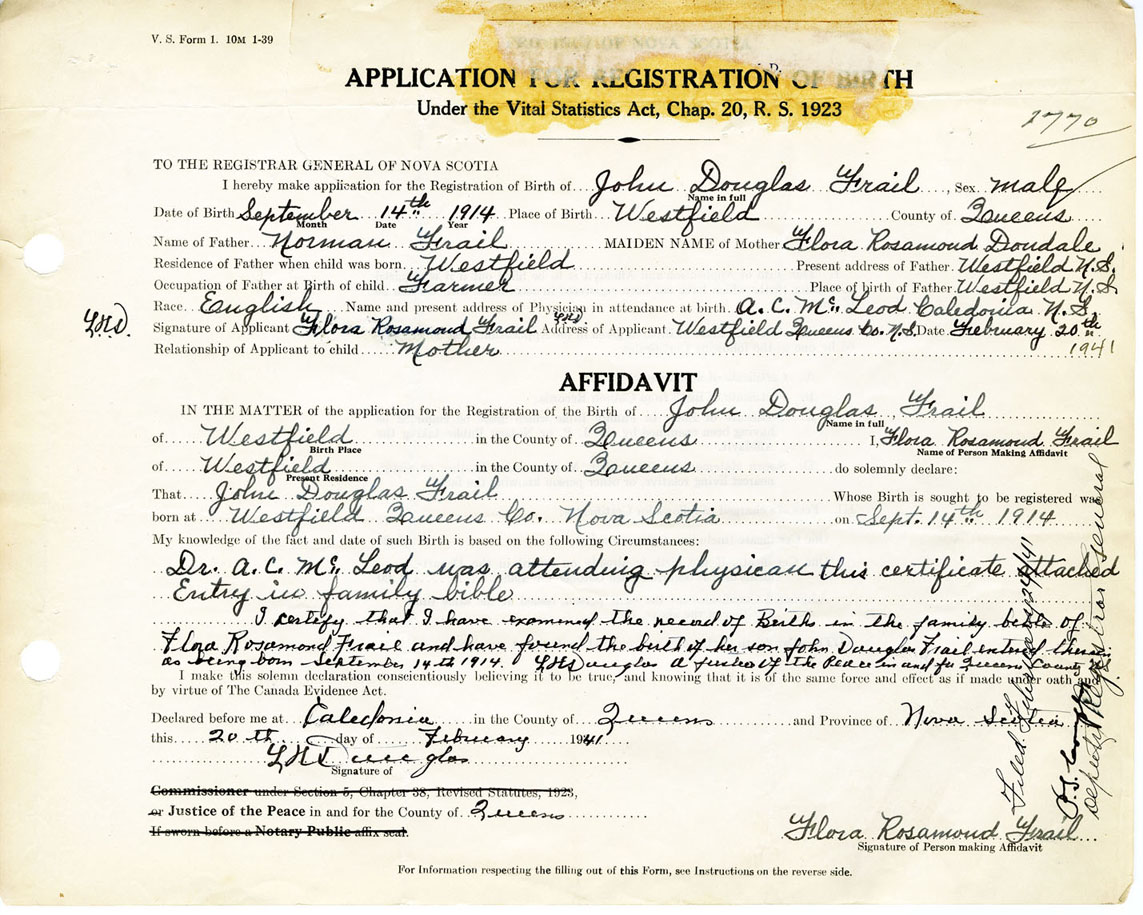 V. S. Form 1. 10M 1-39
APPLICATION FOR REGISTRATION OF BIRTH
Under the Vital Statistics Act, Chap. 20, R. S. 1923
2770
TO THE REGISTRAR GENERAL OF NOVA SCOTIA
I hereby make application for the Registration of Birth of John Douglas Frail, Sex male
Name in full
Date of Birth September 14th 1914 Place of Birth Westfield County of Queens
Month Date Year
Name of Father Norman Frail MAIDEN NAME of Mother Flora Rosamond Dondale
Residence of Father when child was born Westfield Present address of Father Westfield N.S.
Occupation of Father at Birth of child Farmer Place of birth of Father Westfield N.S.
Race English Name and present address of Physician in attendance at birth A. C. McLeod Caledonia N.S.
LHD. Signature of Applicant Flora Rosamond Frail LHD Address of Applicant Westfield Queens Co. N.S. Date February 20th
1941
Relationship of Applicant to child Mother
AFFIDAVIT
IN THE MATTER of the application for the Registration of the Birth of John Douglas Frail
Name in full
of Westfield in the County of Queens I, Flora Rosamond Frail
Birth Place Name of Person Making Affidavit
of Westfield in the County of Queens do solemnly declare:
Present Residence
That John Douglas Frail Whose Birth is sought to be registered was
born at Westfield Queens Co. Nova Scotia on Sept. 14th 1914
My knowledge of the fact and date of such Birth is based on the following Circumstances:
Dr. A. C. McLeod was attending physican this certificate attached
Entry in family bible
I certify that I have examined the record of Births in the family bible of
Flora Rosamond Frail and have found the birth of her son John Douglas Frail intered therein
as being born September 14th 1914. LHDouglas A Justice of the Peace in and for Queens County
I make this solemn declaration conscientiously believing it to be true, and knowing that it is of the same force and effect as if made under oath and
by virtue of The Canada Evidence Act.
Declared before me at Caledonia in the County of Queens and Province of Nova Scotia
this 20th day of February 1941
LHDouglas
Signature of
Commissioner under Section 5, Chapter 38, Revised Statutes, 1923,
or Justice of the Peace in and for the County of Queens
If sworn before a Notary Public affix seal.
Flora Rosamond Frail
Signature of Person making Affidavit
For Information respecting the filling out of this Form, see Instructions on the reverse side.
Filed February 24/41
Deputy Registrar General